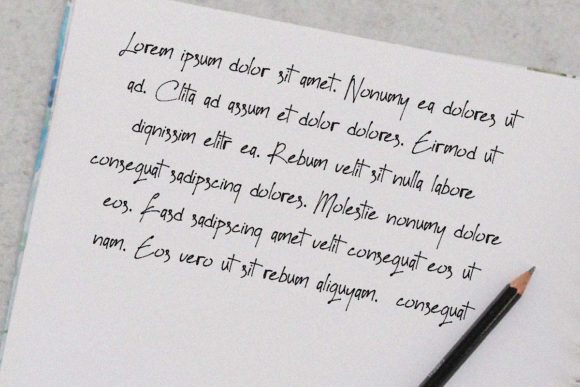 Lorem ipsum dolor sit amet. Nonumy ea dolores ut
ad. Clita ad assum et dolor dolores. Eirmod ut
dignissim elitr ea. Rebum velit sit nulla labore
consequat sadipscing dolores. Molestie nonumy dolore
eos. Easd sadipscing amet velit consequat eos ut
nam. Eos vero ut sit rebum aliquyam. consequat